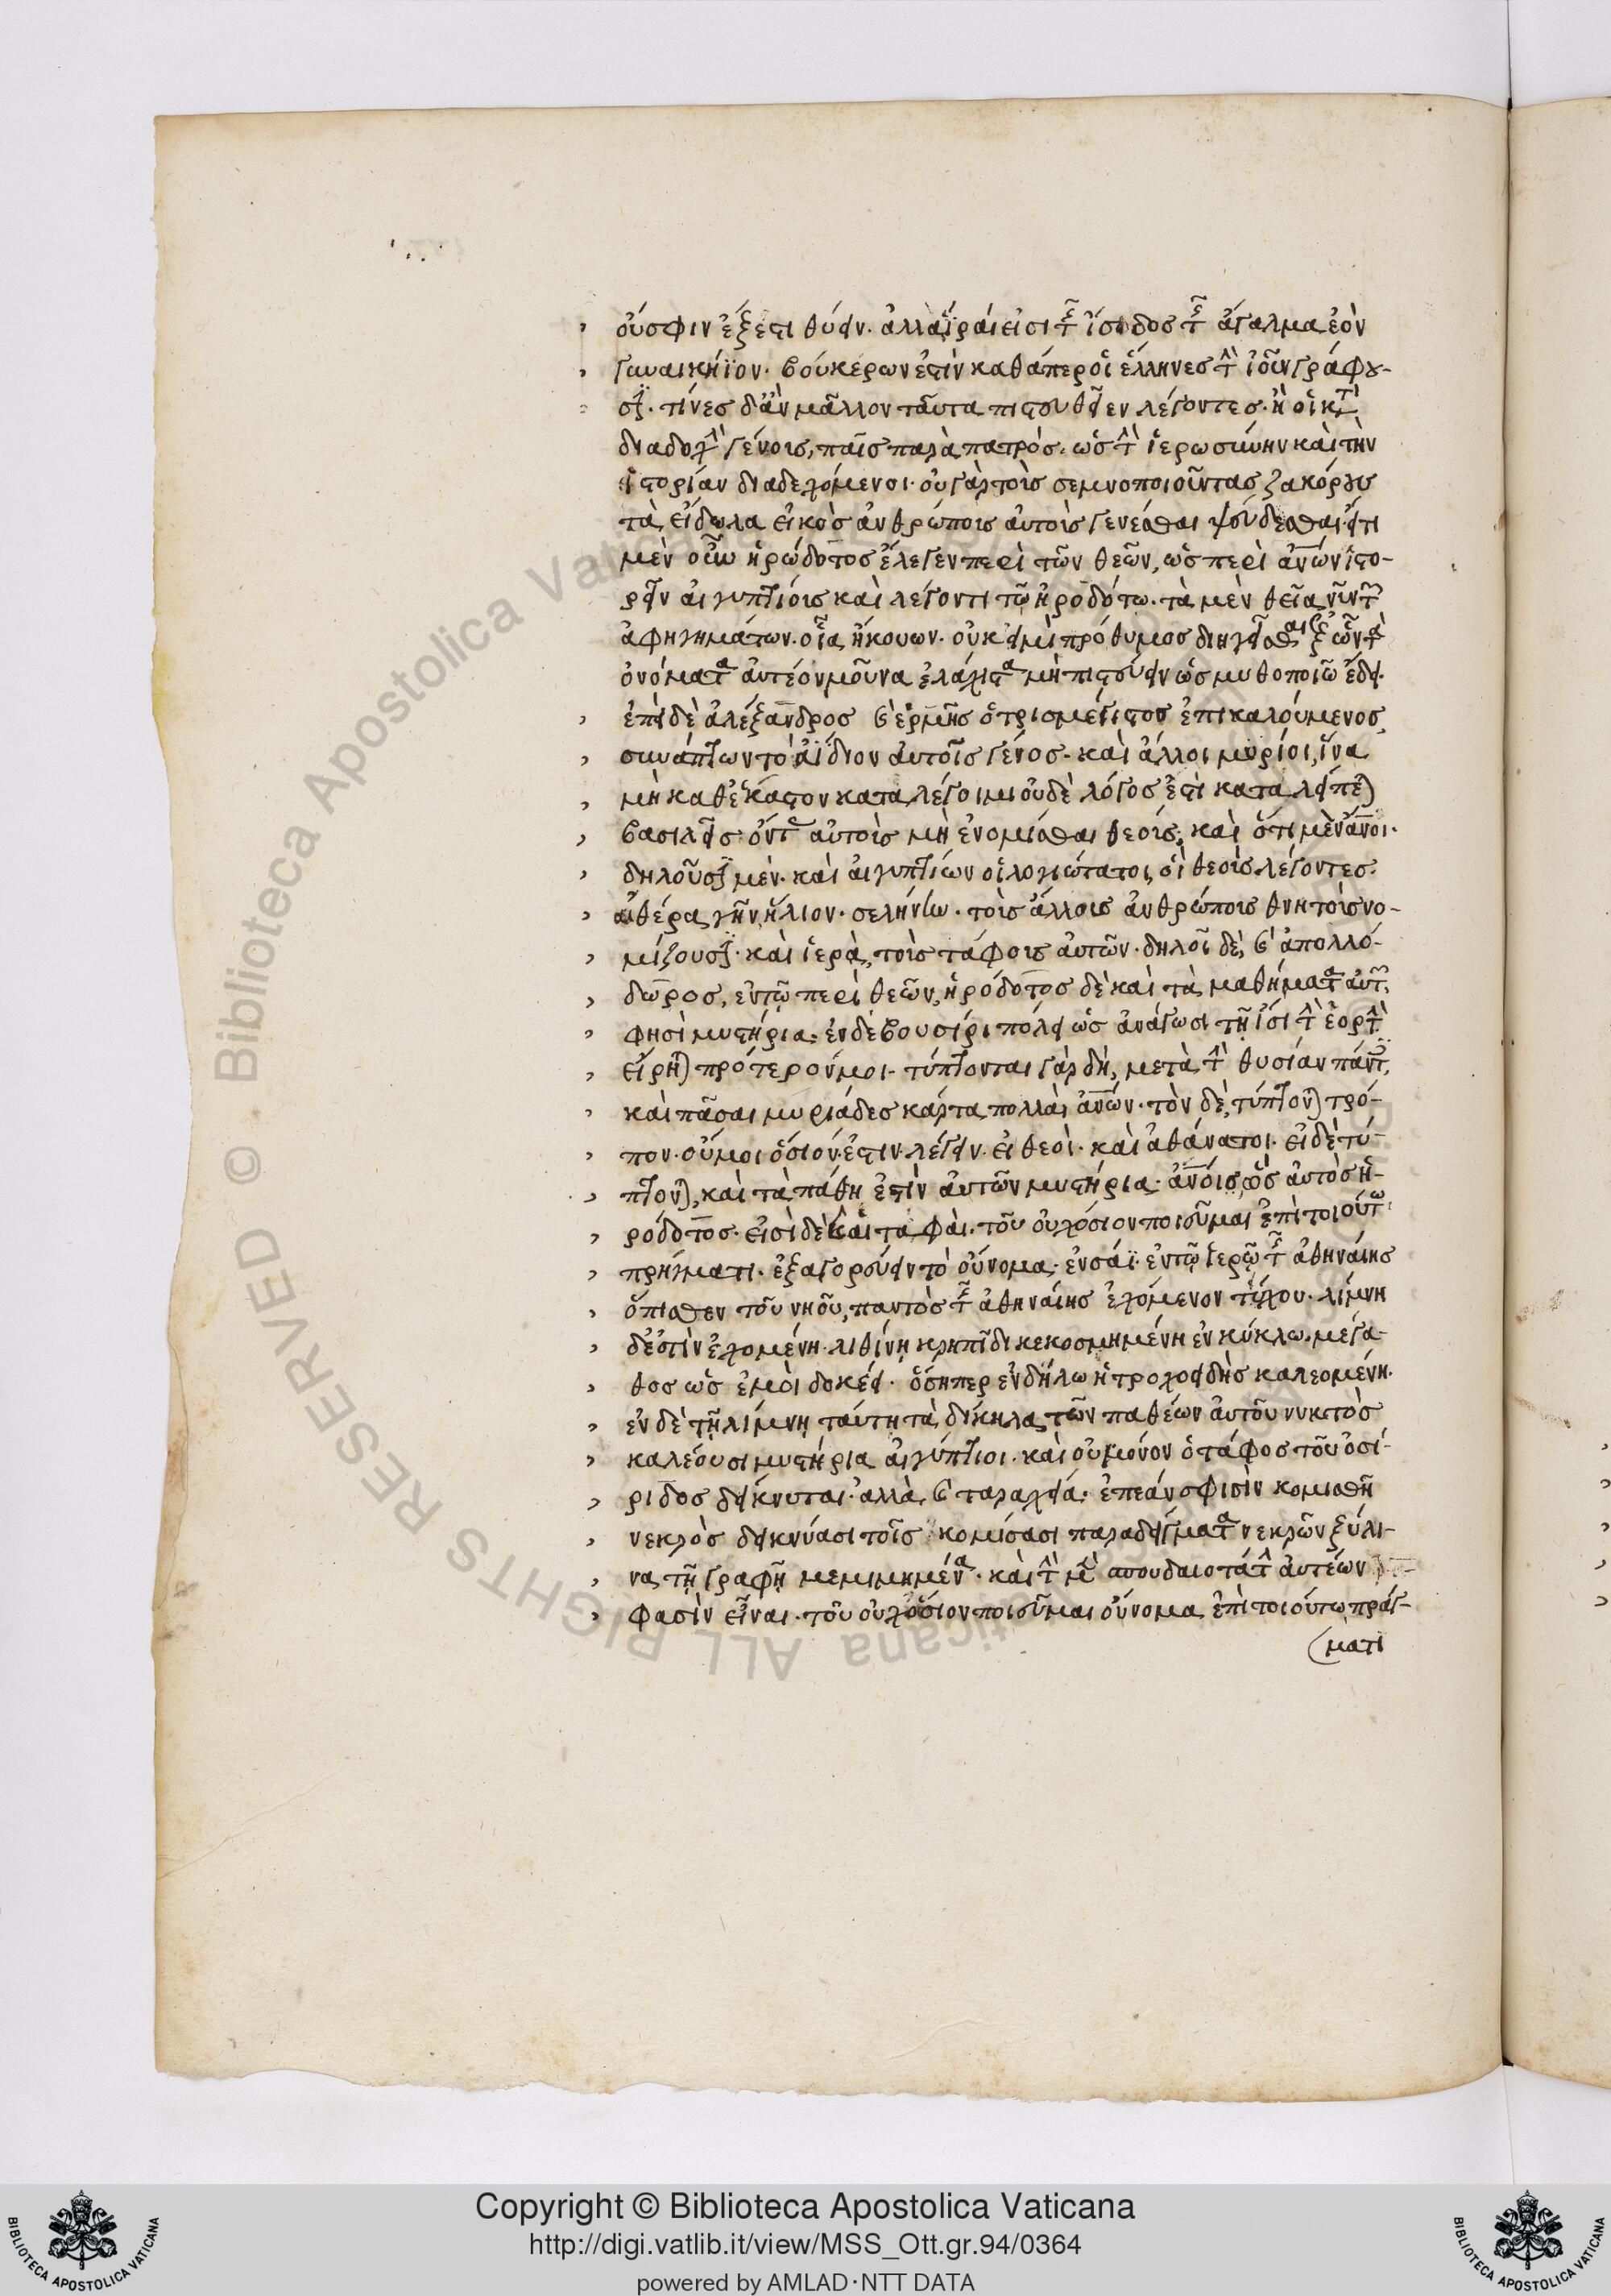 οὔ σφιν ἔξεστι θύειν. ἀλλ' αἱ ἱραί εἰσι τῆς ἴσιδος τῆς ἄγαλμα ἐὸν
γυναικήϊον. βούκερων ἐστὶν καθάπερ οἱ ἕλληνες τὴν ἰοῦν γράφου-
σι. τίνες δ' ἂν μᾶλλον ταῦτα πιστευθεῖεν λέγοντες. ἢ οἱ κατὰ
διαδοχὴν γένοις, παῖς παρὰ πατρὸς. ὡς τὴν ἱερωσύνην καὶ τὴν
ἱστορίαν διαδεχόμενοι. οὐ γὰρ τοὺς σεμνοποιοῦντας ζακόρους
τὰ εἴδωλα εἰκὸς ἀνθρώποις αὐτοὺς γενέσθαι ψεύδεσθαι. ἔτι
μὲν οὖν ἡρώδοτος ἔλεγεν περὶ τῶν θεῶν, ὡς περὶ ἀνῶν ἱστο-
ρεῖν αἰγυπτίοις καὶ λέγοντι τῷ ἡροδότω. τὰ μὲν θεῖα νῦν τῶν
ἀφηγημάτων. οἷα ἤκουων. οὐκ εἰμὶ πρόθυμος διηγεῖσθαι ἔξω ὧν τὰ
ὀνόματα αὐτέον μοῦνα ἐλάχιστα μὴ πιστεύειν ὡς μυθοποιῶ ἔδει.
ἐπεὶ δὲ ἀλέξανδρος καὶ ἑρμῆς ὁ τρισμέγιστος ἐπικαλούμενος,
συνάπτων τὸ ἀΐδιον αὐτοῖς γένος. καὶ ἄλλοι μυρίοι, ἵνα
μὴ καθ' ἕκαστον καταλέγοιμι οὐδὲ λόγος ἔτι καταλείπεται
βασιλεῖς ὄντας αὐτοὺς μὴ ἐνομίσθαι θεούς. καὶ ὅτι μὲν ἄνοι.
δηλοῦσι μὲν. καὶ αἰγυπτίων οἱ λογιώτατοι, οἳ θεοὺς λέγοντες.
αἰθέρα, γῆν ἥλιον. σελήνην. τοὺς ἄλλους ἀνθρώπους θνητοὺς νο-
μίζουσι. καὶ ἱερὰ, τοὺς τάφους αὐτῶν. δηλοῖ δὲ, καὶ ἀπολλό-
δωρος, ἐν τῷ περὶ θεῶν, ἡρόδοτος δὲ καὶ τὰ μαθήματα αὐτῶν,
φησὶ μυστήρια. ἐν δὲ βουσίρι πόλει ὡς ἀνάγωσι τῇ ἴσι τὴν ἑορτὴν
εἴρηται πρότερόν μοι. τύπτονται γὰρ δὴ, μετὰ τὴν θυσίαν πάντες,
καὶ πᾶσαι μυριάδες κάρτα πολλαὶ ἀνῶν. τὸν δὲ, τύπτονται τρό-
πον. οὔ μοι ὅσιόν ἐστιν λέγειν. εἰ θεοὶ. καὶ ἀθάνατοι. εἰ δὲ τύ-
πτονται, καὶ τὰ πάθη ἐστὶν αὐτῶν μυστήρια. ἀνοις, ὡς αὐτὸς ἡ-
ρόδοτος. εἰσὶ δὲ καὶ ταφαὶ. τοῦ οὐχ ὅσιον ποιοῦμαι ἐπὶ τοιούτω
πρήγματι. ἐξαγορεύειν τὸ οὔνομα. ἐν σάϊ. ἐν τῷ ἱερῷ τῆς ἀθηναίης
ὄπισθεν τοῦ νηοῦ, παντὸς τῆς ἀθηναίης ἐχόμενον τείχου. λίμνη
δ' ἐστὶν ἐχομένη. λιθίνη κρηπῖδι κεκοσμημένη ἐν κύκλω. μέγα-
θος ὡς ἐμοὶ δοκέει. ὅσηπερ ἐν δήλω ἡ τροχοειδὴς καλεομένη.
ἐν δὲ τῇ λίμνη ταύτη τὰ δείκηλα τῶν παθέων αὐτοῦ νυκτὸς
καλέουσι μυστήρια αἰγύπτιοι. καὶ οὐ μόνον ὁ τάφος τοῦ ὀσί-
ριδος δείκνυται. ἀλλὰ καὶ ταραχεία. ἐπεάν σφισὶν κομισθῇ
νεκρὸς δεικνύασι τοῖς κομίσασι παραδείγματα νεκρῶν ξύλι-
να τῇ γραφῇ μεμιμημένα. καὶ τὴν μὲν σπουδαιοτάτην αὐτέων
φασὶν εἶναι. τοῦ οὐχ ὅσιον ποιοῦμαι οὔνομα ἐπὶ τοιούτω πράγ-
ματι
Copyright © Biblioteca Apostolica Vaticana
http://digi.vatlib.it/view/MSS_Ott.gr.94/0364
powered by AMLAD·NTT DATA